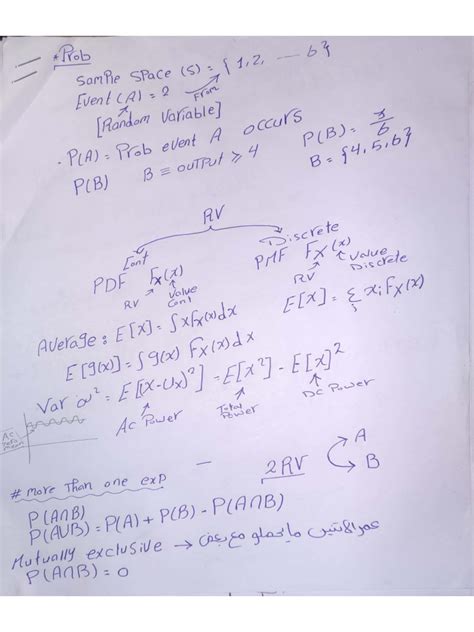 * Prob
Sample Space (S) = {1, 2, ---- 6}
Event (A) = 2
From
[Random Variable]
. P(A) = Prob event A occurs
P(B) B ≡ output ≥ 4
P(B) = 3/6
B = {4, 5, 6}
RV
Cont
PDF Fx(x)
RV Value Cont
Discrete
PMF Fx(x)
RV Value Discrete
Average: E[x] = ∫xFx(x)dx
E[x] = Σ xi Fx(x)
E[g(x)] = ∫g(x) Fx(x)dx
Var σ² = E[(x-Ux)²] = E[x²] - E[x]²
Ac Power
Total Power
DC Power
# more Than one exp
2RV
A
B
P(A∩B)
P(A∪B) = P(A) + P(B) - P(A∩B)
Mutually exclusive → عمر الاتنين ما يحصلو مع بعض
P(A∩B) = 0